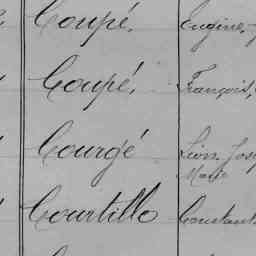 Coupé. Eugène,
Coupé, François,
Courgé Léon Jos
Marie
Courtillo Constant